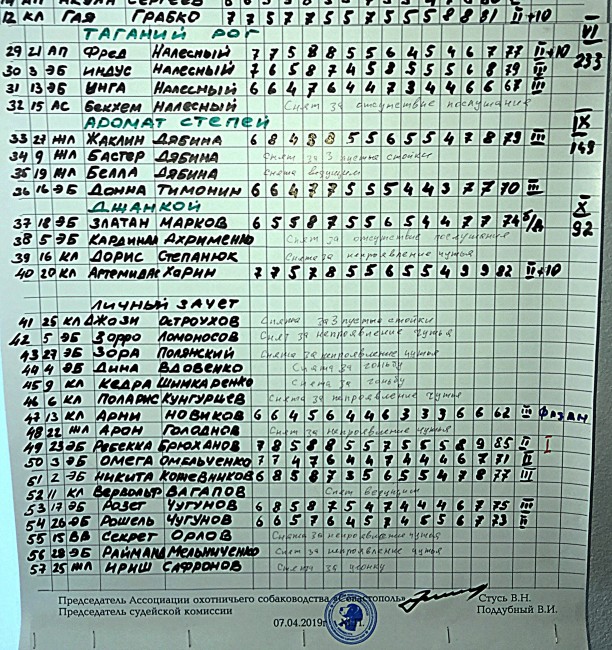 12 КЛ ГАЯ ГРАБКО 7 7 5 7 7 5 5 7 5 5 5 8 8 81 II+10
ТАГАНИЙ РОГ VI
29 21 АП Фред Налесный 7 7 5 8 8 5 5 6 4 5 4 6 7 77 II+10 233
30 3 ЭБ ИНДУС Налесный 7 6 5 8 7 4 5 8 5 5 5 6 8 79 III
31 13 ЭБ УНГА Налесный 6 6 4 7 6 4 4 7 3 4 4 6 6 67 III
32 15 АС Беккем Налесный Снят за отсутствие послушания
АРОМАТ СТЕПЕЙ IX
33 27 ЖЛ ЖАКЛИН ДЯБИНА 6 8 4 8 8 5 5 6 5 5 4 7 8 79 III 149
34 9 ЖЛ БАСТЕР ДЯБИНА Снят за 3 пустых стойки
35 19 ЖЛ Белла ДЯБИНА Снята ведущим
36 16 ЭБ ДОННА ТИМОНИН 6 6 4 7 7 5 5 5 4 4 3 7 7 70 III
ДЖАНКОЙ X
37 18 ЭБ ЗЛАТАН МАРКОВ 6 5 5 8 7 5 5 6 5 4 4 7 7 74 б/д 92
38 5 ЭБ КАРДИНАЛ АХРИМЕНКО Снят за отсутствие послушания
39 16 КЛ ДОРИС СТЕПАНЮК Снята за непроявление чутья
40 20 КЛ Артемида ХАРИН 7 7 5 7 8 5 5 6 5 5 4 9 9 82 II+10
ЛИЧНЫЙ ЗАЧЕТ
41 25 КЛ ДЖАЗИ ОСТРОУХОВ Снята за 3 пустых стойки
42 5 ЭБ Зорро ЛОМОНОСОВ Снят за непроявление чутья
43 27 ЭБ ЗОРА ПОЛЯНСКИЙ Снята за непроявление чутья
44 4 ЭБ ДИНА ВДОВЕНКО Снята за гоньбу
45 9 КЛ КЕДРА ШИНКАРЕНКО Снята за гоньбу
46 6 КЛ ПОЛАРИС КУНГУРЦЕВ Снята за непроявление чутья
47 13 КЛ АРНИ НОВИКОВ 6 6 4 5 6 4 4 6 3 3 3 6 6 62 III Фазан
48 22 ЖЛ АРОН ГОЛОДНОВ Снят за непроявление чутья
49 23 ЭБ Ребекка БРЮХАНОВ 7 8 5 8 8 5 5 7 5 5 5 8 9 85 II I
50 3 ЭБ ОМЕГА ОМЕЛЬЧЕНКО 7 7 4 7 6 4 4 7 4 4 4 6 7 71 II
51 2 ЭБ НИКИТА КОЖЕВНИКОВ 6 8 5 8 7 3 5 6 5 5 4 7 8 77 III
52 11 КЛ Вервольф ВАГАПОВ Снят ведущим
53 17 ЭБ РОЗЕТ ЧУГУНОВ 6 8 5 8 7 5 4 7 4 4 4 6 7 75 III
54 26 ЭБ РОШЕЛЬ ЧУГУНОВ 6 6 5 7 6 4 5 7 4 5 5 6 7 73 II
55 15 ВВ СЕКРЕТ ОРЛОВ Снята за непроявление чутья
56 28 ЭБ РАЙМАНД МЕЛЬНИЧЕНКО Снят за непроявление чутья
57 25 ЖЛ ИРИШ САФРОНОВ Снята за угонку
Председатель Ассоциации охотничьего собаководства «Севастополь» Стусь В.Н.
Председатель судейской комиссии Поддубный В.И.
07.04.2019г.